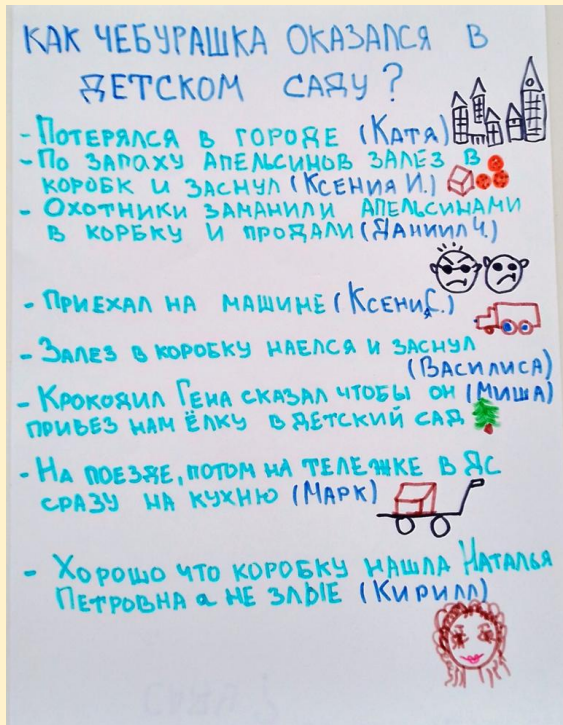 КАК ЧЕБУРАШКА ОКАЗАЛСЯ В
ДЕТСКОМ САДУ?
- ПОТЕРЯЛСЯ В ГОРОДЕ (КАТЯ)
- ПО ЗАПАХУ АПЕЛЬСИНОВ ЗАЛЕЗ В
КОРОБК И ЗАСНУЛ (КСЕНИЯ И.)
- ОХОТНИКИ ЗАМАНИЛИ АПЕЛЬСИНАМИ
В КОРБКУ И ПРОДАЛИ (ДАНИИЛ Ч.)
- ПРИЕХАЛ НА МАШИНЕ (КСЕНИЯ С.)
- ЗАЛЕЗ В КОРОБКУ НАЕЛСЯ И ЗАСНУЛ
(ВАСИЛИСА)
- КРОКОДИЛ ГЕНА СКАЗАЛ ЧТОБЫ ОН (МИША)
ПРИВЕЗ НАМ ЁЛКУ В ДЕТСКИЙ САД
- НА ПОЕЗДЕ, ПОТОМ НА ТЕЛЕЖКЕ В ДС
СРАЗУ НА КУХНЮ (МАРК)
- ХОРОШО ЧТО КОРОБКУ НАШЛА НАТАЛЬЯ
ПЕТРОВНА а НЕ ЗЛЫЕ (КИРИЛЛ)